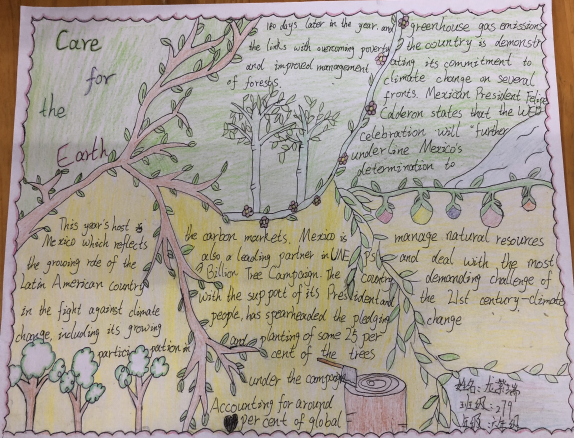 Care
for
the
Earth
180 days later in the year. and
the links with overcoming poverty
and improved management
of forests.
greenhouse gas emission
the country is demonstr
ating its commitment to
climate change on several
fronts. Mexican President Felipe
Calderon states that the WED
celebration will "further
underline Mexico's
determination to
This year's host is
Mexico which reflects
the growing role of the
Latin American country
in the fight against climate
change, including its growing
participation in
the carbon markets. Mexico is
also a leading partner in UNEP's
Billion Tree Campaign. The country
with the support of its President and
people, has spearheaded the pledging
and planting of some 25 per
cent of the trees
under the campaign
Accounting for around
per cent of global
manage natural resources
and deal with the most
demanding challenge of
the 21st century-climate
change
姓名:
班级: 279
年级: 六年级